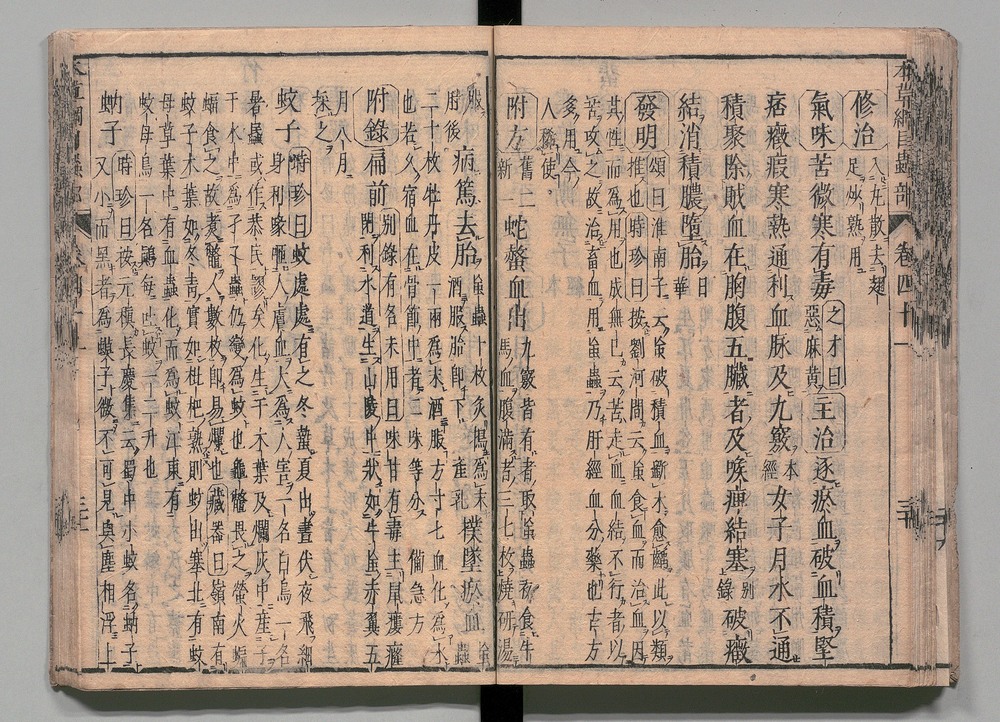 本草綱目蟲部 卷四十一
修治 入丸散去翅足炒熟用
氣味苦微寒有毒 之才曰惡麻黃 主治逐瘀血破血積堅
痞癥瘕寒熱通利血脉及九竅 本經 女子月水不通
積聚除賊血在胸腹五臟者及喉痹結塞 別錄 破癥
結消積膿墮胎 日華
發明 頌曰淮南子云䖟破積血斲木愈齲此以類
推也時珍曰按劉河間云䖟食血而治血因
其性而爲用也成無已云苦走血血結不行者以
苦攻之故治畜血用䖟蟲乃肝經血分藥也古方
多用今人稀使
附方 舊二 新一 蛇螫血出 九竅皆有者取䖟蟲初食牛
馬血腹滿者三七枚燒研湯
服 肘後 病篤去胎 䖟蟲十枚炙搗爲末酒服胎卽下 產乳 撲墜瘀血 䖟蟲
二十枚牡丹皮一兩爲末酒服方寸匕血化爲水
也若久宿血在骨節中者二味等分 備急方
附錄 扁前 別錄有名未用曰味甘有毒主鼠瘻癰
閉利水道生山陵中狀如牛䖟赤翼五
月八月采之
蚊子 時珍曰蚊處處有之冬蟄夏出晝伏夜飛細
身利喙咂人膚血大爲人害一名白鳥一名
暑䘆或作黍民謬矣化生于木葉及爛灰中產子
于水中爲孑孑蟲仍變爲蚊也龜鼈畏之螢火蝙
蝠食之故煮鼈入數枚卽易爛也藏器曰嶺南有
蚊子木葉如冬青實如枇杷熟則蚊出塞北有蚊
母草葉中有血蟲化而爲蚊江東有
蚊母鳥一名鷏每吐蚊一二升也
蚋子 時珍曰按元稹長慶集云蜀中小蚊名蚋子
又小而黑者爲蟆子微不可見與塵相浮上